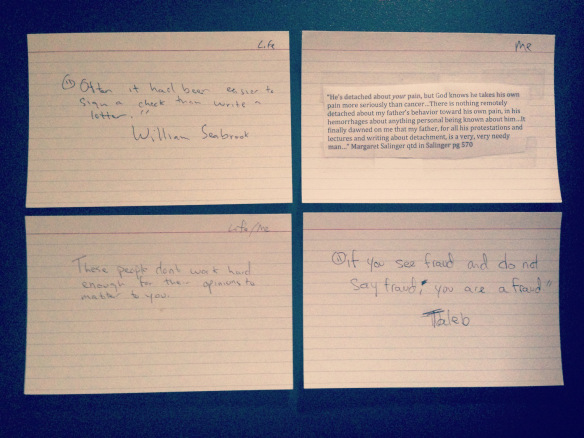 Life
(11) Often it had been easier to
sign a check than write a
letter."
William Seabrook
Me
"He's detached about your pain, but God knows he takes his own
pain more seriously than cancer...There is nothing remotely
detached about my father's behavior toward his own pain, in his
hemorrhages about anything personal being known about him...It
finally dawned on me that my father, for all his protestations and
lectures and writing about detachment, is a very, very needy
man..." Margaret Salinger qtd in Salinger pg 570
Life/Me
These people don't work hard
enough for their opinions to
matter to you.
(11) if you see fraud and do not
say fraud, you are a fraud"
Taleb